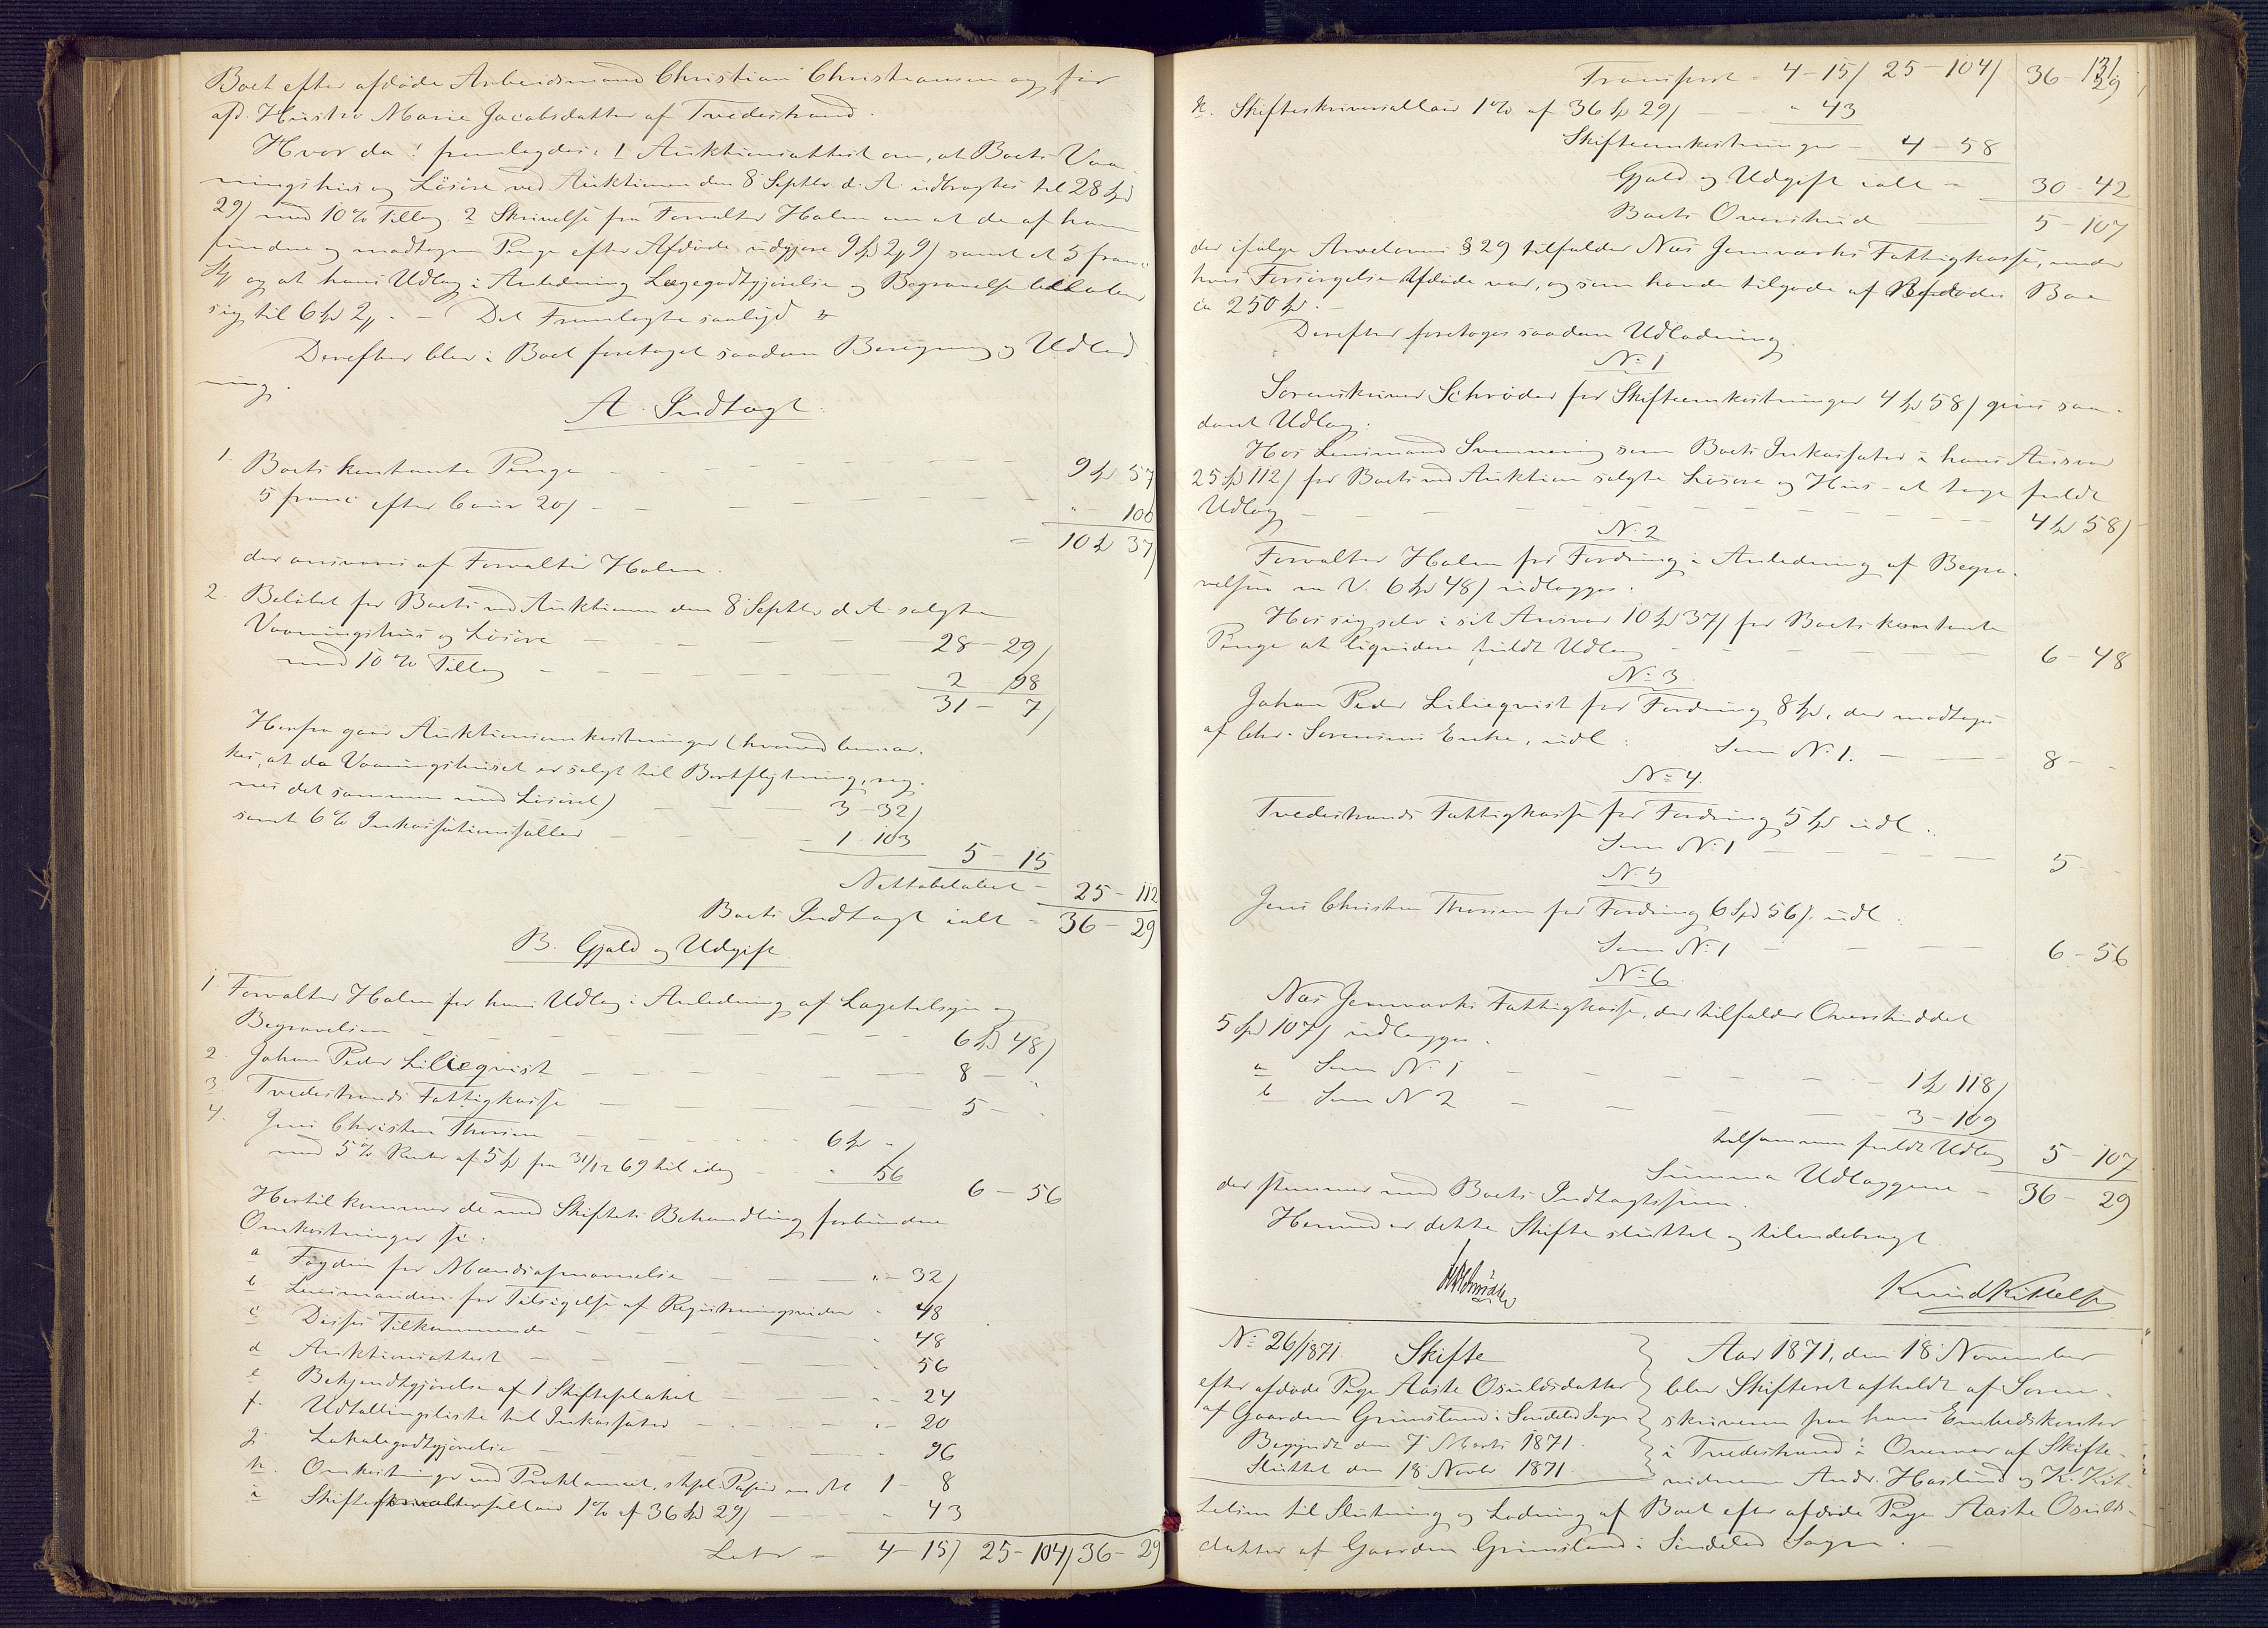 Boet efter afdøde Arbeidsmand Christian Christiansen og før
afd. Hustro Marie Jacobsdatter af Tvedestrand.
Hvor da: fremlagdes: 1 Auktionsattest om, at Boets Vaa-
ningshus og Løsøre ved Auktionen den 8 Septbr. d. A. udbragtes til 28 Spd
29 ß med 10% Tillæg. 2 Skrivelse fra Forvalter Holm om at de af ham
fundne og modtagne Penge efter Afdøde udgjøre 9 Spd 2 9 ß samt et 5 franc
og at hans Udlæg i Anledning Lægegodtgjørelse og Begravelse beløber
sig til 6 Spd 2 . – Det Fremlagte saalyd
Derefter blev i Boet foretaget saadan Beregning og Udlod-
ning.
A. Indtægt.
1. Boets kontante Penge – 9 Spd 57
5 franc efter Cours 20 ß – " – 100
= 10 Spd 37 ß
der ansvares af Forvalter Holm.
2. Beløbet for Boets ved Auktionen den 8 Septbr d. A. solgte
Vaaningshus og Løsøre – 28 – 29 ß
med 10% Tillæg – 2 – 98
31 – 7 ß
Herfra gaar Auktionsomkostninger (hvorved bemær-
kes, at da Vaaningshuset er solgt til Bortflytning, reg-
nes det sammen med Løsøret) – 3 – 32 ß
samt 6% Inkassationssallær – 1 – 103
5 – 15
Nettobeløbet – 25 – 112
Boets Indtægt ialt = 36 – 29
B. Gjæld og Udgift.
1. Forvalter Holm for hans Udlæg i Anledning af Lægetilsyn og
Begravelsen – 6 Spd 48 ß
2. Johan Peder Liliequist – 8 – "
3. Tvedestrands Fattigkasse – 5 – "
4. Jens Christen Thorsen – 6 Spd "
med 5% Renter af 5 Spd fra 31/12 69 til idag – " 56
6 – 56
Hertil kommer de med Skiftets Behandling forbundne
Omkostninger s:
a Fogden for Mændsopnævnelse – " – 32 ß
b Lensmanden for Tilsigelse af Registreringsvidner " 48
c Disses Tilkommende – " 48
d Auktionsattest – " 56
e Bekjendtgjørelse af 1 Skifteplakat – " – 24
f. Udtællingsliste til Inkassator – " – 20
g. Lokalegodtgjørelse – " 96
h. Omkostninger ved Proklamaet, stpl. Papir m M 1 – 8
i Skifteforvaltersallær 1% af 36 Spd 29 ß – " 43
Latr – 4 – 15 ß 25 – 104 ß 36 – 29
131
Transport = 4 – 15 ß 25 – 104 ß 36 – 29
k. Skifteskriversallær 1% af 36 Spd 29 ß – " 43
Skifteomkostninger – 4 – 58
Gjæld og Udgift ialt = 30 – 42
Boets Overskud 5 – 107
der ifølge Arveloven § 29 tilfalder Næs Jernværks Fattigkasse, under
hvis Forsørgelse Afdøde var, og som havde tilgode af Afdødes Bo
ca 250 Spd. –
Derefter foretoges saadan Udlodning.
No 1
Sorenskriver Schrøder for Skifteomkostninger 4 Spd 58 ß gives saa-
dant Udlæg:
Hos Lensmand Svenning som Boets Inkassator i hans Ansvar
25 Spd 112 ß for Boets ved Auktion solgte Løsøre og Hus – at tage fuldt
Udlæg – 4 Spd 58 ß
No. 2
Forvalter Holm for Fordring i Anledning af Begra-
velsen m V. 6 Spd 48 ß udlægges:
Hos sig selv i sit Ansvar 10 Spd 37 ß for Boets kontante
Penge at liqvidere fuldt Udlæg – 6 – 48
No. 3.
Johan Peder Liliequist for Fordring 8 Spd, der modtages
af Enke, udl: Som No. 1. – 8 –
No. 4.
Tvedestrands Fattigkasse for Fordring 5 Spd udl:
Som No. 1 – 5 –
No 5
Jens Christen Thorsen for Fordring 6 Spd 56 ß. udl:
Som No. 1 – 6 – 56
No. 6
Næs Jernværks Fattigkasse, der tilfalder Overskuddet
5 Spd 107 ß udlægges:
a Som No. 1 – 1 Spd 118 ß
b Som No 2 – 3 – 109
tilsammen fuldt Udlæg 5 – 107
Summa Udlæggene – 36 – 29
der stemmer med Boets Indtægtssum.
Hermed er dette Skifte sluttet og tilendebragt.
Schrøder Knud Kittelsen
No. 26/1871. Skifte
efter afdøde Pige Aaste Osuldsdatter
af Gaarden Grimsland i Søndeled Sogn
Begyndt den 7 Marts 1871.
Sluttet den 18 Novbr 1871
Aar 1871, den 18 November
blev Skifteret afholdt af Soren-
skriveren paa hans Embedskontor
i Tvedestrand i Overvær af Skifte-
vidnerne Andr. Haslund og K. Kit-
telsen til Slutning og Lodning af Boet efter afdøde Pige Aaste Osulds-
datter af Gaarden Grimsland i Søndeled Sogn. –